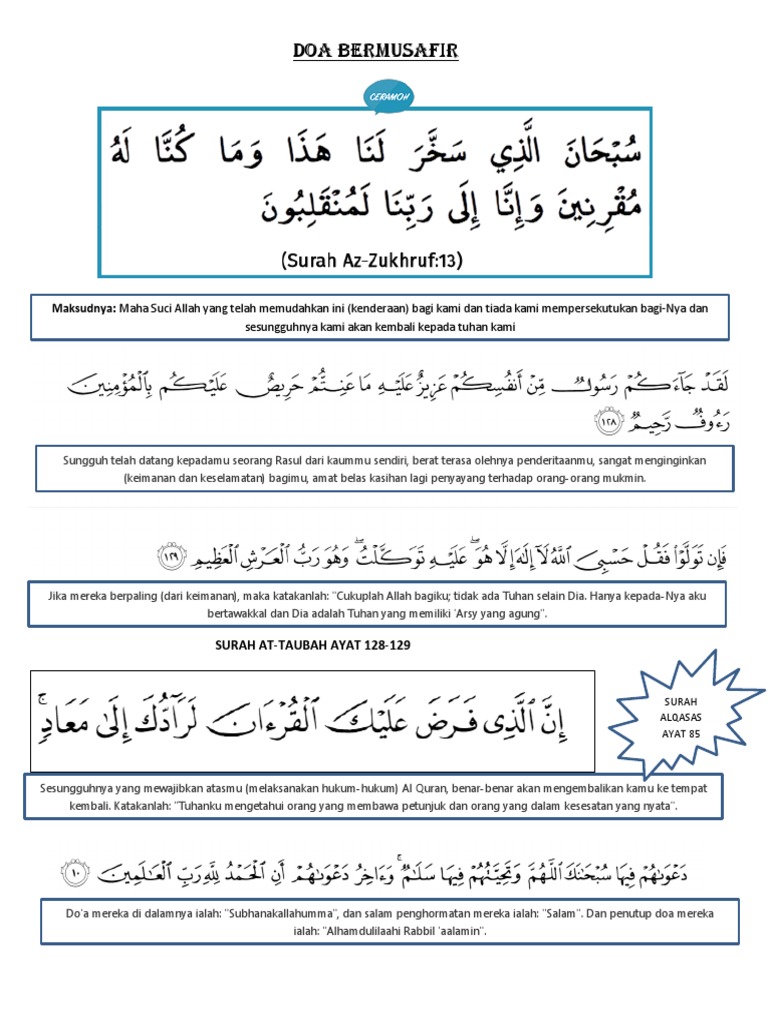 DOA BERMUSAFIR
CERAMOH
سُبْحَانَ الَّذِي سَخَّرَ لَنَا هَذَا وَمَا كُنَّا لَهُ
مُقْرِنِينَ وَإِنَّا إِلَى رَبِّنَا لَمُنْقَلِبُونَ
(Surah Az-Zukhruf:13)
Maksudnya: Maha Suci Allah yang telah memudahkan ini (kenderaan) bagi kami dan tiada kami mempersekutukan bagi-Nya dan
sesungguhnya kami akan kembali kepada tuhan kami
لَقَدْ جَآءَكُمْ رَسُولٌ مِّنْ أَنفُسِكُمْ عَزِيزٌ عَلَيْهِ مَا عَنِتُّمْ حَرِيصٌ عَلَيْكُم بِالْمُؤْمِنِينَ
رَءُوفٌ رَّحِيمٌ ١٢٨
Sungguh telah datang kepadamu seorang Rasul dari kaummu sendiri, berat terasa olehnya penderitaanmu, sangat menginginkan
(keimanan dan keselamatan) bagimu, amat belas kasihan lagi penyayang terhadap orang-orang mukmin.
فَإِن تَوَلَّوْا۟ فَقُلْ حَسْبِىَ ٱللَّهُ لَآ إِلَٰهَ إِلَّا هُوَ ۖ عَلَيْهِ تَوَكَّلْتُ ۖ وَهُوَ رَبُّ ٱلْعَرْشِ ٱلْعَظِيمِ ١٢٩
Jika mereka berpaling (dari keimanan), maka katakanlah: "Cukuplah Allah bagiku; tidak ada Tuhan selain Dia. Hanya kepada-Nya aku
bertawakkal dan Dia adalah Tuhan yang memiliki 'Arsy yang agung".
SURAH AT-TAUBAH AYAT 128-129
إِنَّ ٱلَّذِى فَرَضَ عَلَيْكَ ٱلْقُرْءَانَ لَرَآدُّكَ إِلَىٰ مَعَادٍ ۚ
SURAH
ALQASAS
AYAT 85
Sesungguhnya yang mewajibkan atasmu (melaksanakan hukum-hukum) Al Quran, benar-benar akan mengembalikan kamu ke tempat
kembali. Katakanlah: "Tuhanku mengetahui orang yang membawa petunjuk dan orang yang dalam kesesatan yang nyata".
دَعْوَىٰهُمْ فِيهَا سُبْحَٰنَكَ ٱللَّهُمَّ وَتَحِيَّتُهُمْ فِيهَا سَلَٰمٌ ۚ وَءَاخِرُ دَعْوَىٰهُمْ أَنِ ٱلْحَمْدُ لِلَّهِ رَبِّ ٱلْعَٰلَمِينَ ١٠
Do'a mereka di dalamnya ialah: "Subhanakallahumma", dan salam penghormatan mereka ialah: "Salam". Dan penutup doa mereka
ialah: "Alhamdulilaahi Rabbil 'aalamin".